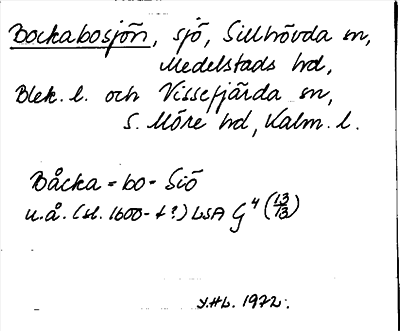 Bockabosjön, sjö, Sillhövda sn,
Medelstads hd,
Blek. l. och Vissefjärda sn,
S. Möre hd, Kalm. l.
Båcka=bo=Siö
u.å. (sl. 1600-t?) LSA G4 (13/13)
Y.Hb. 1972.